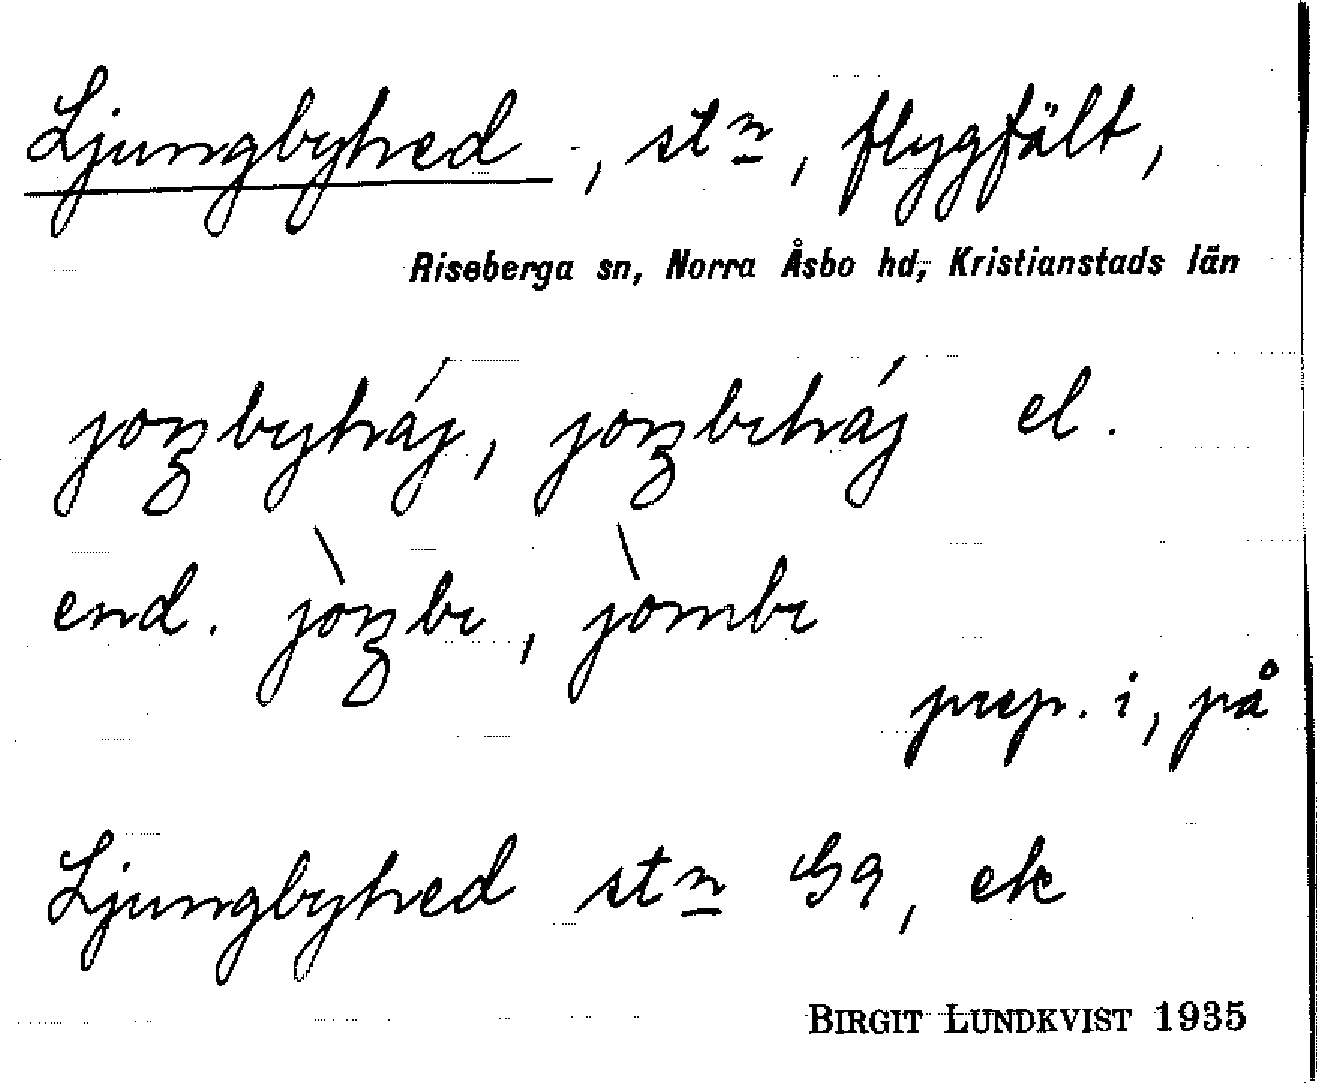 Ljungbyhed, stn, flygfält,
Riseberga sn, Norra Åsbo hd, Kristianstads län
joŋbyháj, joŋbeháj el.
end. jòŋbe, jòmbe
prep. i, på
Ljungbyhed stn G9, ek
BIRGIT LUNDKVIST 1935